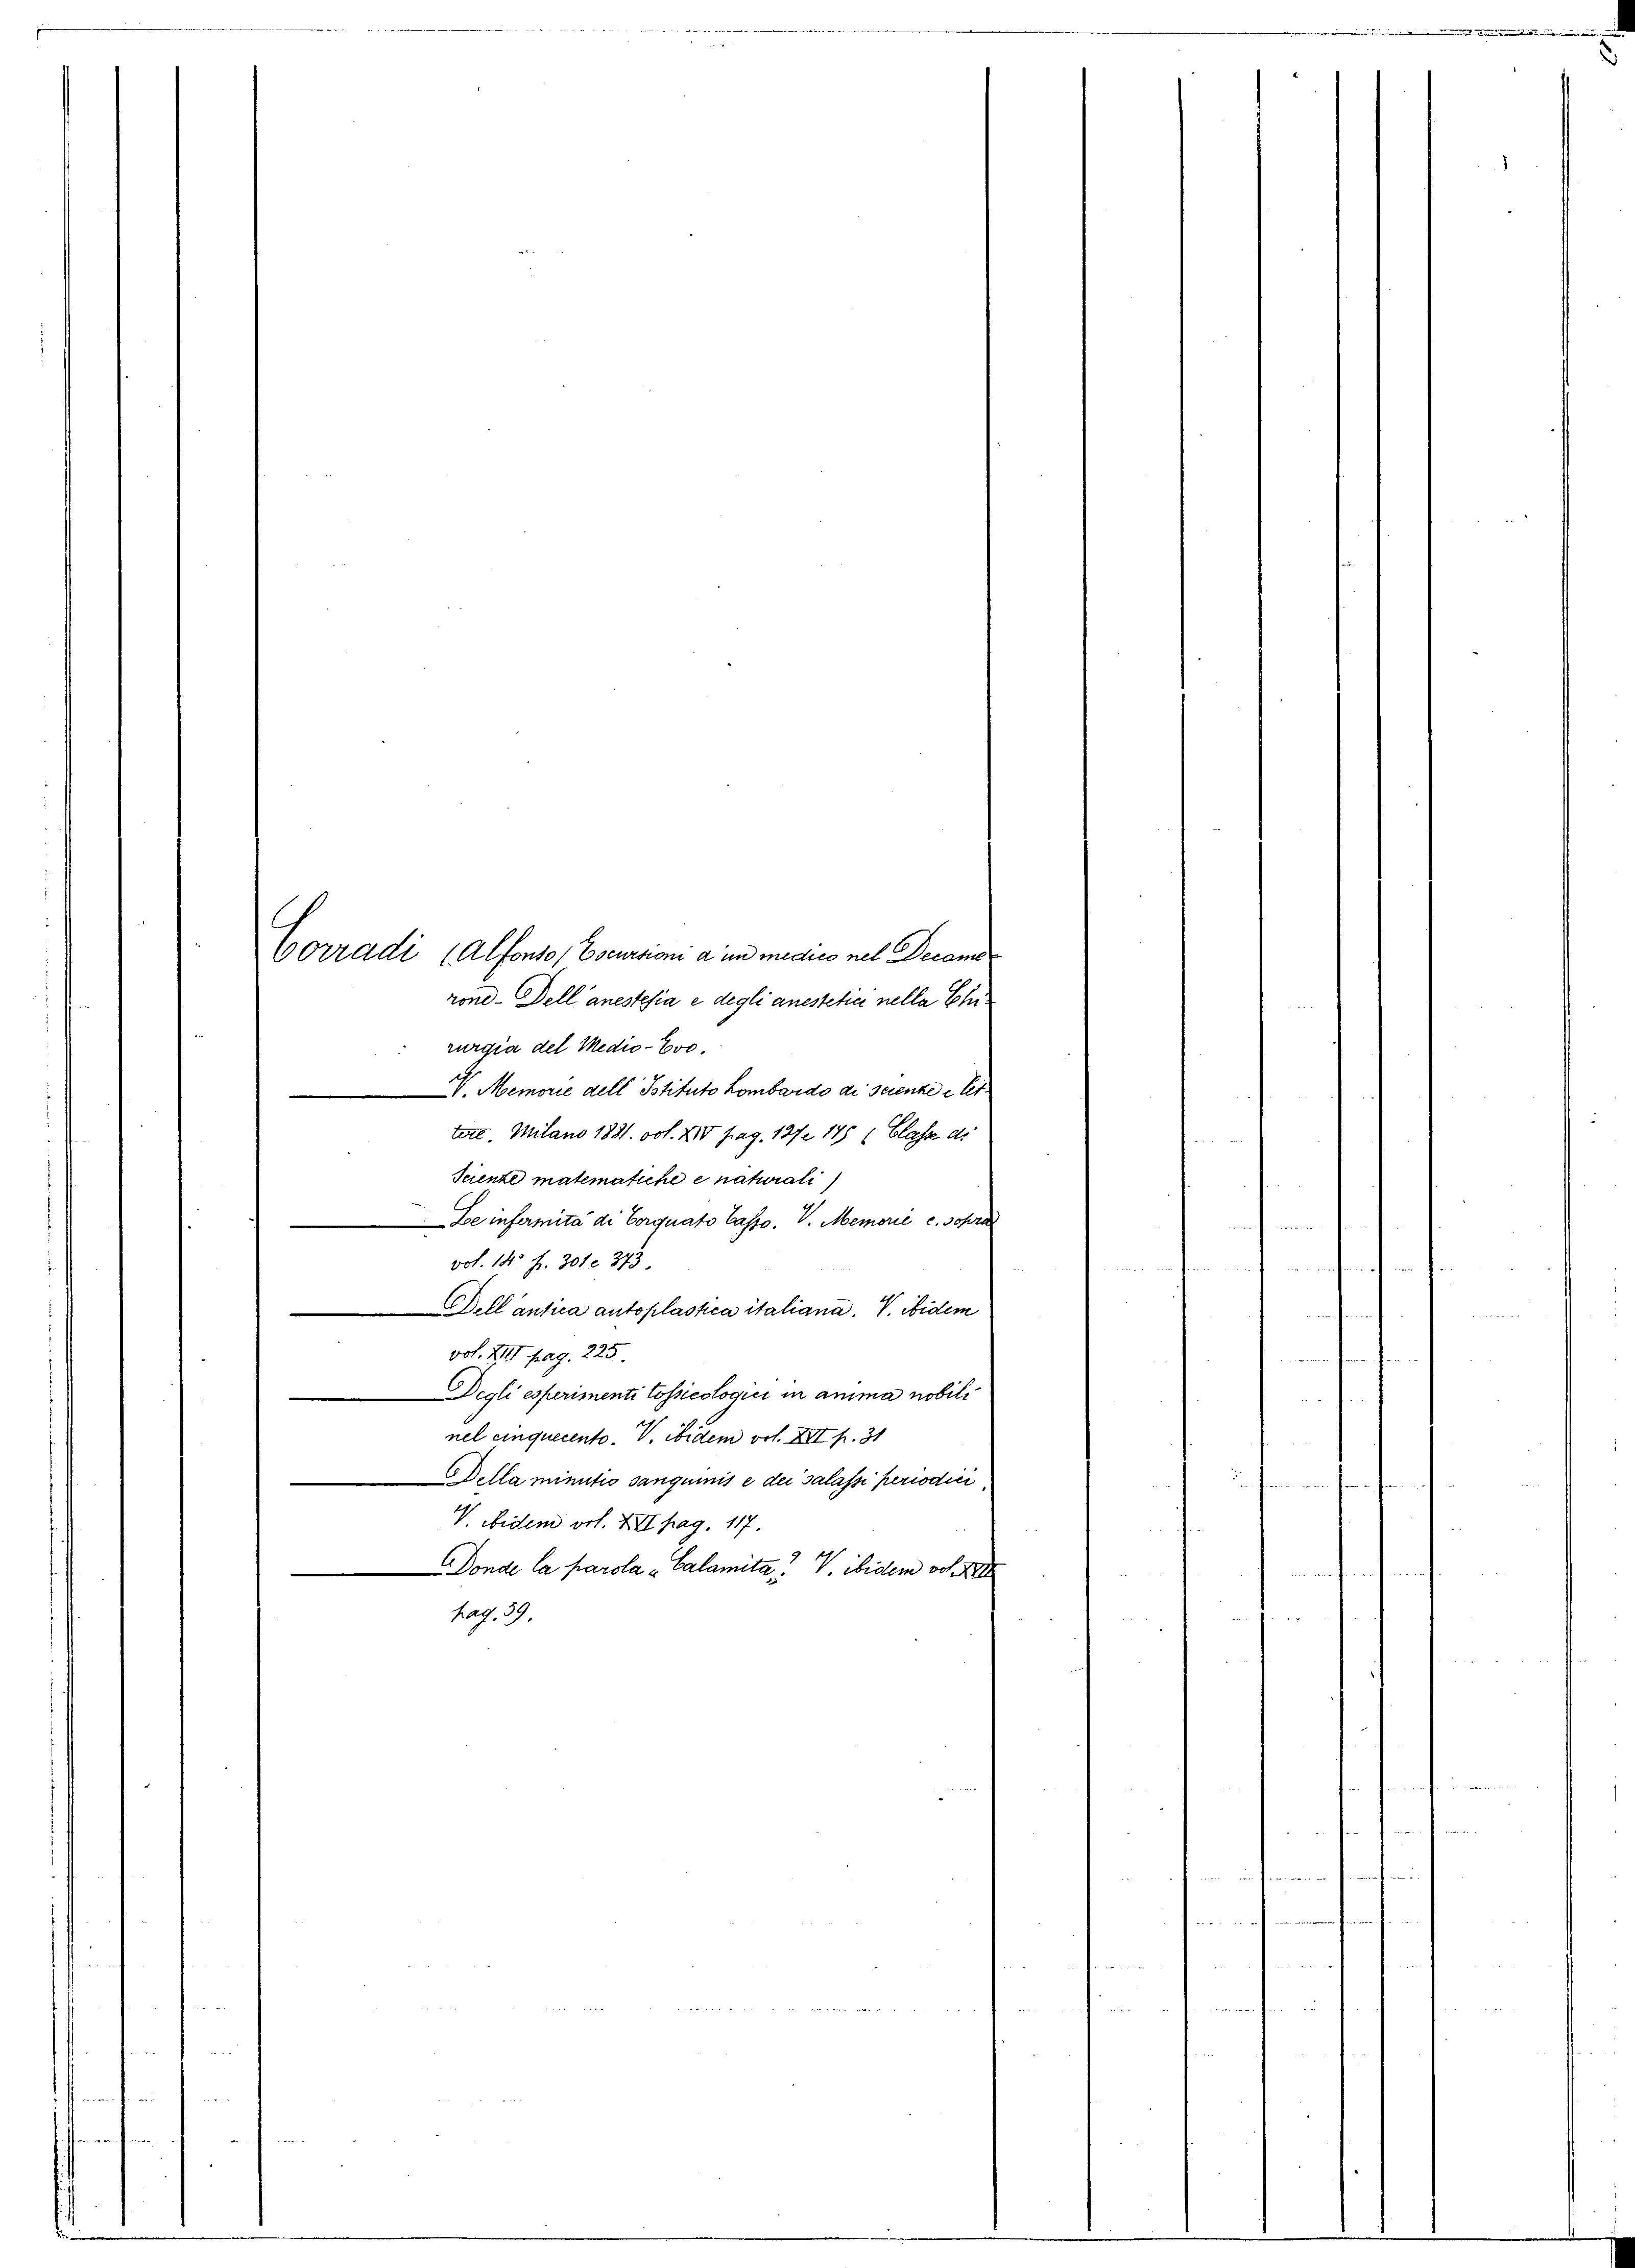 Corradi (Alfonso) Escursioni d'un medico nel Decame-
rone - Dell'anestesia e degli anestetici nella Chi-
rurgia del Medio-Evo.
V. Memorie dell'Istituto Lombardo di scienze e let-
tere. Milano 1881. vol. XIV pag. 127 e 175 (Classe di
Scienze matematiche e naturali)
Le infermità di Torquato Tasso. V. Memorie c. sopra
vol. 14° p. 301 e 373.
Dell'antica autoplastica italiana. V. ibidem
vol. XIII pag. 225.
Degli esperimenti tossicologici in anima nobili
nel cinquecento. V. ibidem vol. XVI p. 31
Della minutio sanguinis e dei salassi periodici,
V. ibidem vol. XVI pag. 117.
Donde la parola „Calamita„? V. ibidem vol. XVII
pag. 39.